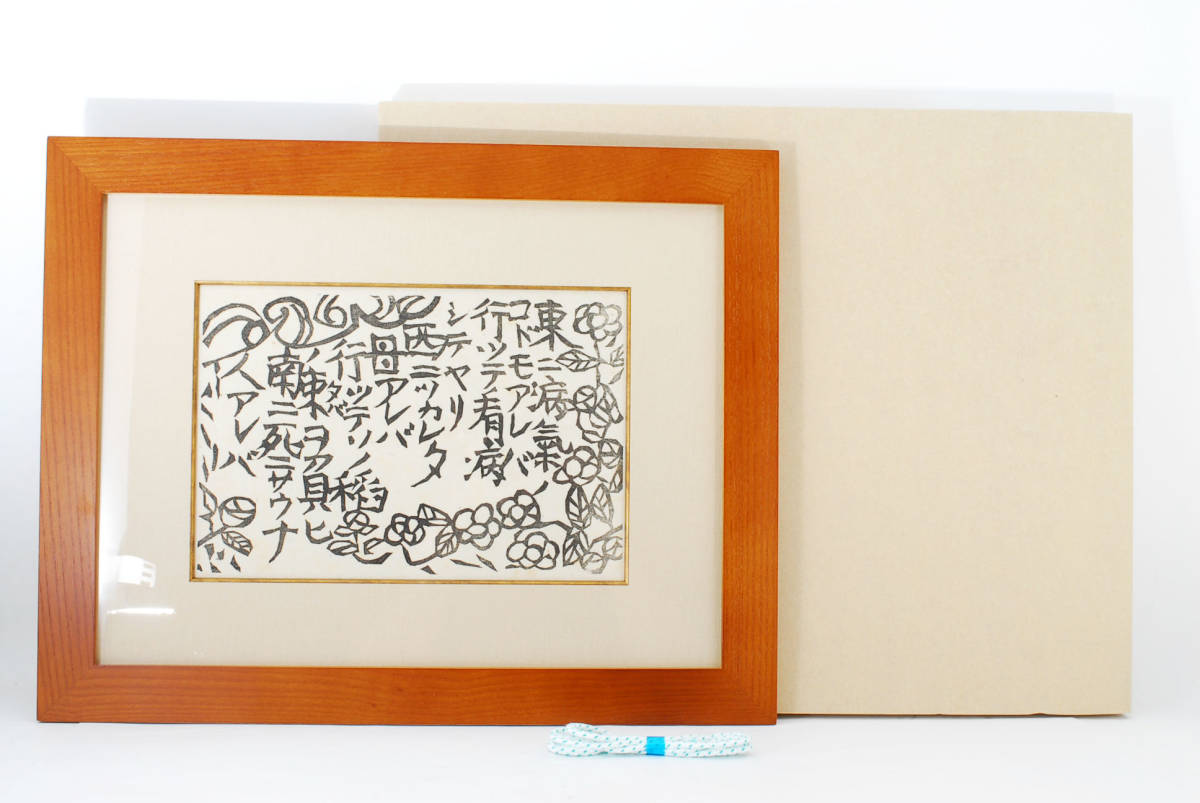 東ニ病氣ノ
コドモアレバ
行ッテ看病
シテヤリ
西ニツカレタ
母アレバ
行ッテソノ稲
ノ束ヲ負ヒ
南ニ死ニサウナ
人アレバ